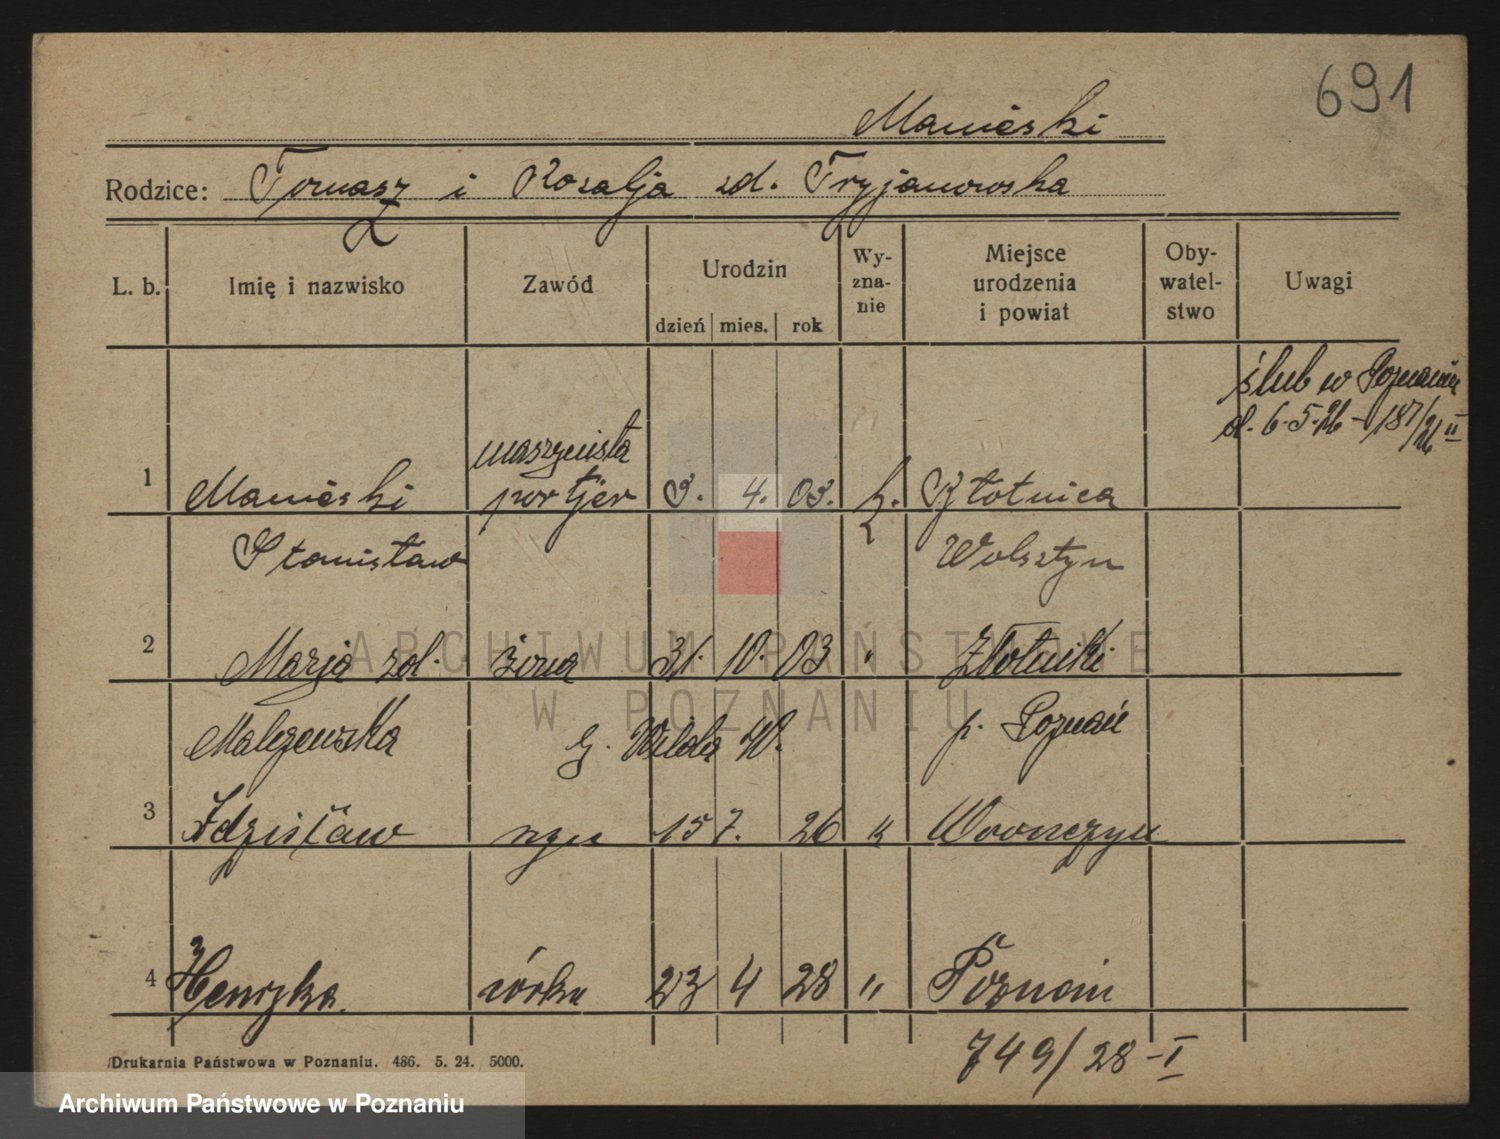 691
Manieski
Rodzice: Tomasz i Rozalja zd. Fryjanowska
L. b.
Imię i nazwisko
Zawód
Urodzin
dzień mies. rok
Wy-
zna-
nie
Miejsce
urodzenia
i powiat
Oby-
watel-
stwo
Uwagi
ślub w Poznaniu
d. 6.5.26 - 187/26 II
maszynista
1 Manieski portjer 3. 4. 03. k. Złotnica
Stanisław Wolsztyn
2 Marja zd. żona 31. 10. 03 " Złotniki
Malczewska G. Wilda 40. p. Poznań
3 Zdzisław syn 15 7. 26 k Woonczyn
4 Henryka. córka 23 4 28 " Poznań
749/28 - I
Drukarnia Państwowa w Poznaniu. 486. 5. 24. 5000.
ARCHIWUM PAŃSTWOWE
W POZNANIU
Archiwum Państwowe w Poznaniu